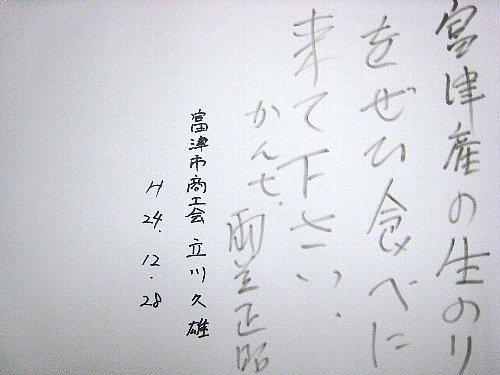 富津産の生のり
をぜひ食べに
来て下さい.
かん七. 正昭
富津市商工会 立川久雄
H24.12.28